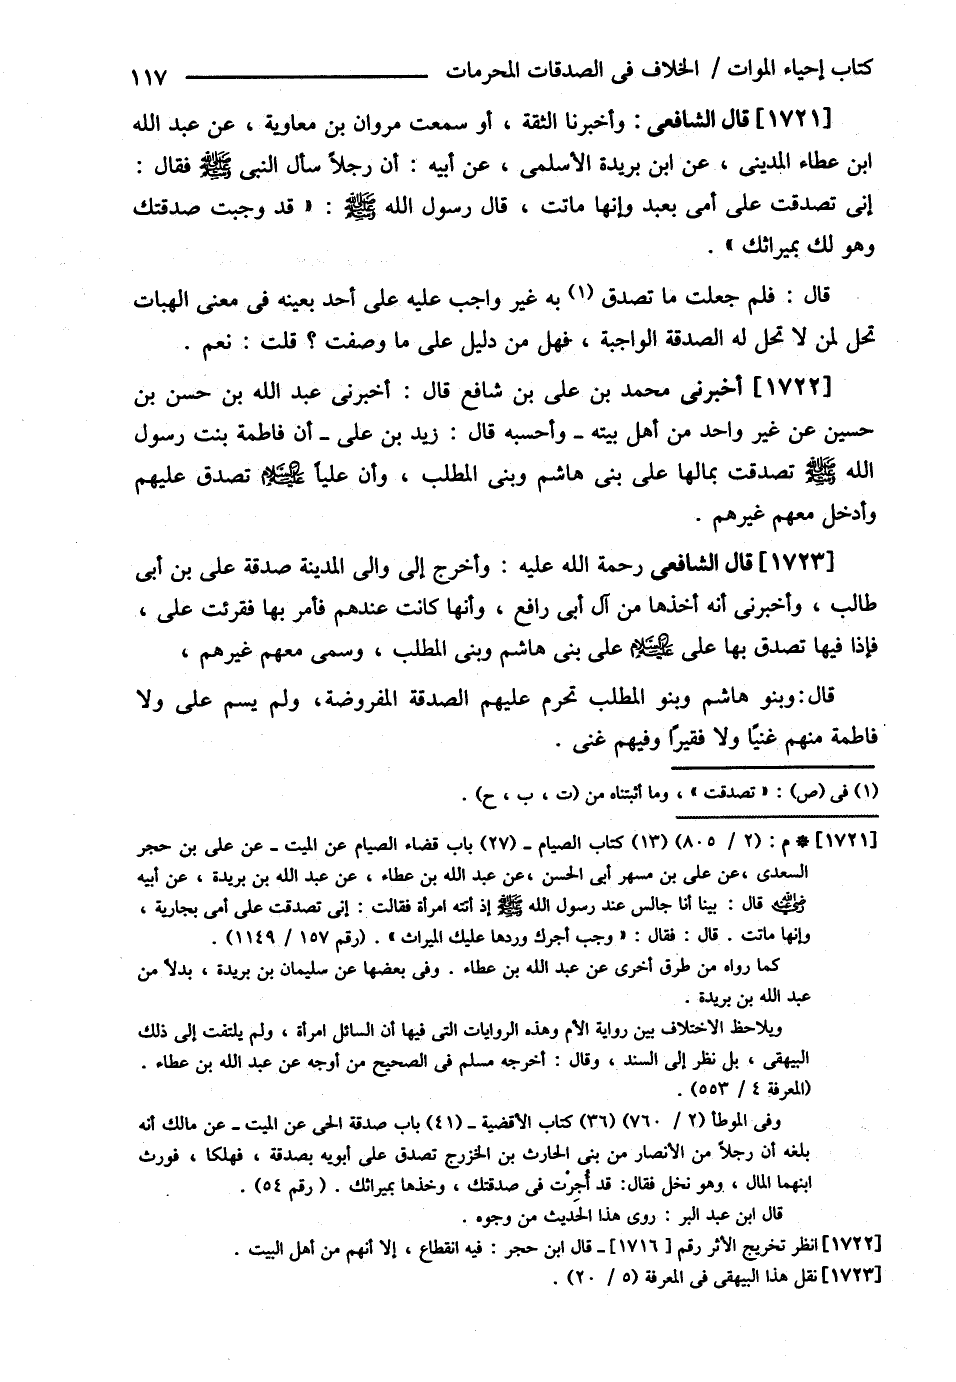 كتاب إحياء الموات / الخلاف فى الصدقات المحرمات ــــــــــــــــ ١١٧
[١٧٢١] قال الشافعى : وأخبرنا الثقة ، أو سمعت مروان بن معاوية ، عن عبد الله
ابن عطاء المدينى ، عن ابن بريدة الأسلمى ، عن أبيه : أن رجلاً سأل النبى ﷺ فقال :
إنى تصدقت على أمى بعبد وإنها ماتت ، قال رسول الله ﷺ : « قد وجبت صدقتك
وهو لك بميراثك » .
قال : فلم جعلت ما تصدق (١) به غير واجب عليه على أحد بعينه فى معنى الهبات
تحل لمن لا تحل له الصدقة الواجبة ، فهل من دليل على ما وصفت ؟ قلت : نعم .
[١٧٢٢] أخبرنى محمد بن على بن شافع قال : أخبرنى عبد الله بن حسن بن
حسين عن غير واحد من أهل بيته ـ وأحسبه قال : زيد بن على ـ أن فاطمة بنت رسول
الله ﷺ تصدقت بمالها على بنى هاشم وبنى المطلب ، وأن علياً عليه السلام تصدق عليهم
وأدخل معهم غيرهم .
[١٧٢٣] قال الشافعى رحمة الله عليه : وأخرج إلى والى المدينة صدقة على بن أبى
طالب ، وأخبرنى أنه أخذها من آل أبى رافع ، وأنها كانت عندهم فأمر بها فقرئت على ،
فإذا فيها تصدق بها على عليه السلام على بنى هاشم وبنى المطلب ، وسمى معهم غيرهم ،
قال: وبنو هاشم وبنو المطلب تحرم عليهم الصدقة المفروضة، ولم يسم على ولا
فاطمة منهم غنيًا ولا فقيرًا وفيهم غنى .
(١) فى (ص) : « تصدقت » ، وما أثبتناه من (ت ، ب ، ح) .
[١٧٢١] * م : (٢ / ٨٠٥) (١٣) كتاب الصيام ـ (٢٧) باب قضاء الصيام عن الميت ـ عن على بن حجر
السعدى ،عن على بن مسهر أبى الحسن ،عن عبد الله بن عطاء ، عن عبد الله بن بريدة ، عن أبيه
رضي الله عنه قال : بينا أنا جالس عند رسول الله ﷺ إذ أتته امرأة فقالت : إنى تصدقت على أمى بجارية ،
وإنها ماتت . قال : فقال : « وجب أجرك وردها عليك الميراث » . (رقم ١٥٧ / ١١٤٩) .
كما رواه من طرق أخرى عن عبد الله بن عطاء . وفى بعضها عن سليمان بن بريدة ، بدلاً من
عبد الله بن بريدة .
ويلاحظ الاختلاف بين رواية الأم وهذه الروايات التى فيها أن السائل امرأة ، ولم يلتفت إلى ذلك
البيهقى ، بل نظر إلى السند ، وقال : أخرجه مسلم فى الصحيح من أوجه عن عبد الله بن عطاء .
(المعرفة ٤ / ٥٥٣) .
وفى الموطأ (٢ / ٧٦٠) (٣٦) كتاب الأقضية ـ (٤١) باب صدقة الحى عن الميت ـ عن مالك أنه
بلغه أن رجلاً من الأنصار من بنى الحارث بن الخزرج تصدق على أبويه بصدقة ، فهلكا ، فورث
ابنهما المال ، وهو نخل فقال: قد أُجِرْت فى صدقتك ، وخذها بميراثك . ( رقم ٥٤) .
قال ابن عبد البر : روى هذا الحديث من وجوه .
[١٧٢٢] انظر تخريج الأثر رقم [ ١٧١٦] ـ قال ابن حجر : فيه انقطاع ، إلا أنهم من أهل البيت .
[١٧٢٣] نقل هذا البيهقى فى المعرفة (٥ / ٢٠) .